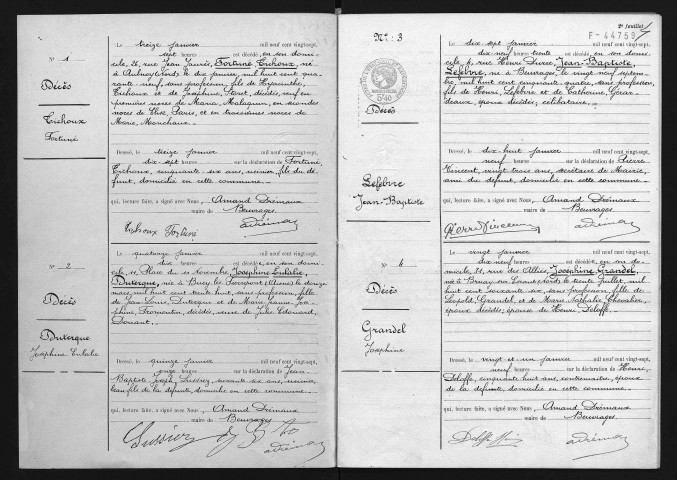 N° 1
Décès
Tichoux
Fortuné
Le treize janvier mil neuf cent vingt-sept,
sept heures est décédé, en son domi-
cile, 26, rue Jean Jaurès, Fortuné, Tichoux, né
à Aulnoy, Nord, le dix janvier, mil huit cent qua-
rante-neuf, sans profession, fils de Hyacinthe,
Tichoux et de Joséphine, Staret, décédés, veuf en
premières noces de Maria, Malaquin, en secondes
noces de Élise, Paris, et en troisièmes noces de
Marie, Marchaux.
Dressé, le treize janvier mil neuf cent vingt-sept,
dix-sept heures sur la déclaration de Fortuné,
Tichoux, cinquante six ans, mineur, fils du dé-
funt, domicilié en cette commune.
qui, lecture faite, a signé avec Nous, Amand Drémaux
maire de Beuvrages.
Tichoux Fortuné
N° 2
Décès
Dutergue
Joséphine Eulalie
Le quatorze janvier mil neuf cent vingt-sept,
dix heures est décédée, en son domi-
cile, 11, Place du 11 Novembre, Joséphine Eulalie,
Dutergue, née à Bucy les Pierrepont (Aisne) le douze
mars, mil huit cent trente huit, sans profession, fille
de Jean Louis, Dutergue et de Marie Jeanne Jo-
phine, Fromentin, décédés, veuve de Jules Edouard,
Doriant.
Dressé, le quinze janvier mil neuf cent vingt-sept,
onze heures sur la déclaration de Jean-
Baptiste Joseph, Lussiez, soixante six ans, mineur,
beau fils de la défunte, domicilié en cette commune.
qui, lecture faite, a signé avec Nous, Amand Drémaux
maire de Beuvrages.
2e feuillet
F-44759
N°: 3
Décès
Lefebvre
Jean-Baptiste
Le dix sept janvier mil neuf cent vingt-sept,
dix-neuf heures trente est décédé, en son domi-
cile, 4, rue Henri Durre, Jean-Baptiste,
Lefebvre, né à Beuvrages, le vingt neuf septem-
bre, mil huit cent cinquante quatre, sans profession,
fils de Henri, Lefebvre et de Catherine, Girar-
deaux, époux décédés, célibataire.
Dressé, le dix huit janvier mil neuf cent vingt-sept,
neuf heures sur la déclaration de Pierre
Vincent, vingt trois ans, secrétaire de Mairie,
ami du défunt, domicilié en cette commune.
qui, lecture faite, a signé avec Nous, Amand Drémaux
maire de Beuvrages.
N° 4
Décès
Grandel
Joséphine
Le vingt janvier mil neuf cent vingt-sept,
dix-neuf heures est décédée, en son do-
micile, 31, rue des Alliés, Joséphine, Grandel,
née à Bruay sur Escaut, Nord, le trente juillet, mil
huit cent soixante six, sans profession, fille de
Léopold, Grandel, et de Marie Nathalie, Chevalier,
époux décédés, épouse de Henri, Deloffe.
Dressé, le vingt-et-un janvier mil neuf cent vingt-sept,
neuf heures sur la déclaration de Henri,
Deloffe, cinquante huit ans, contremaître, époux
de la défunte, domicilié en cette commune.
qui, lecture faite, a signé avec Nous, Amand Drémaux
maire de Beuvrages.